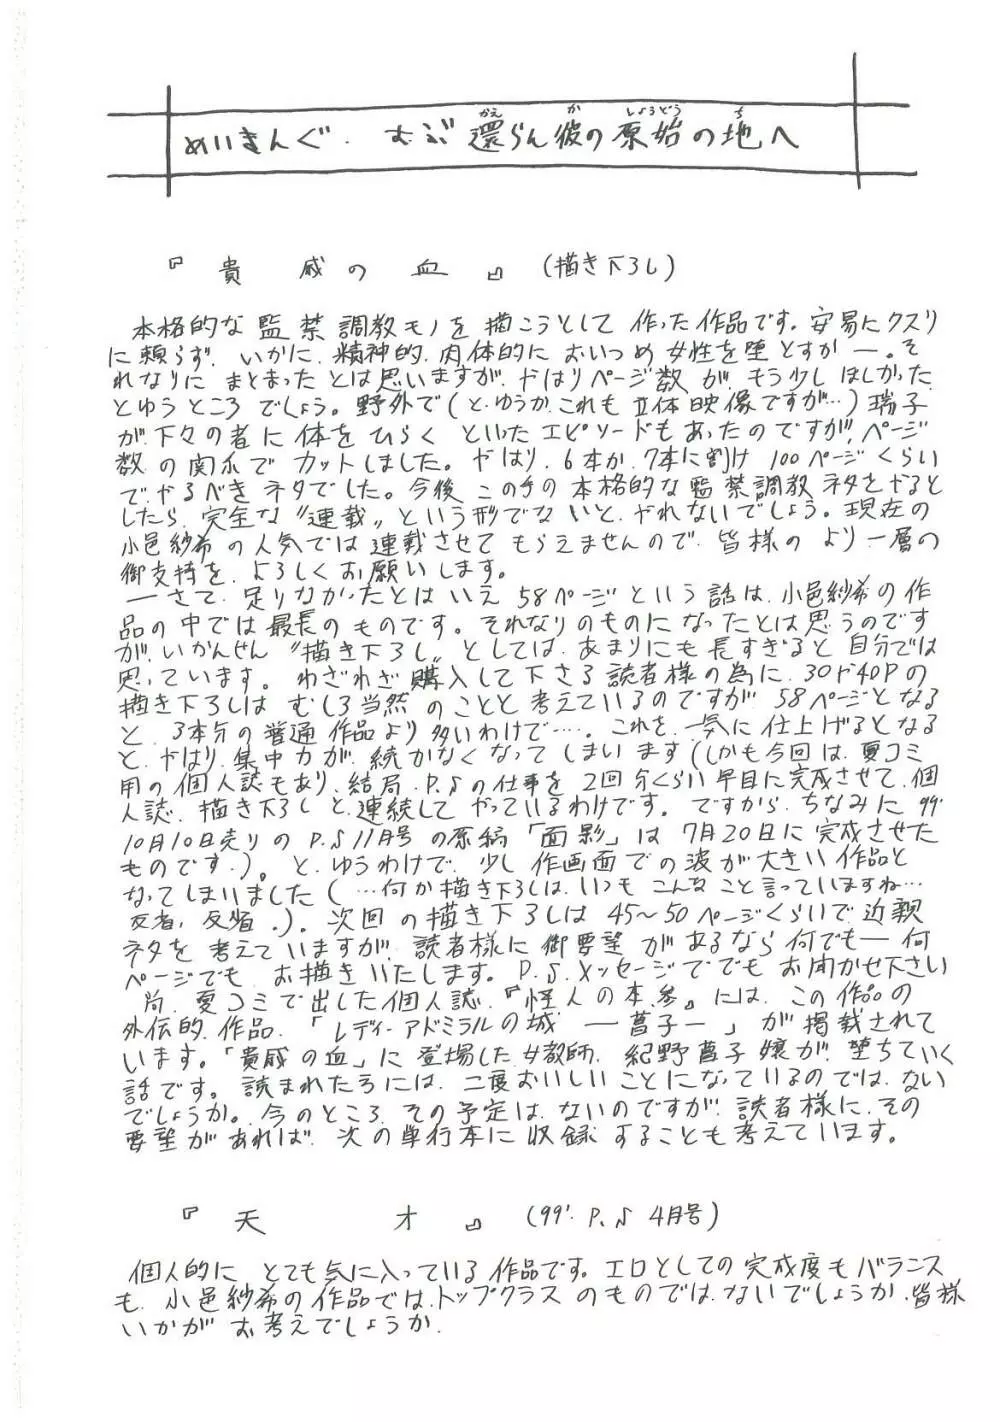 めいきんぐ・おぶ 還らん彼の原始の地へ
かえ か しょうどう ち
『貴戚の血』(描き下ろし)
本格的な監禁調教モノを描こうとして作った作品です。安易にクスリ
に頼らず、いかに、精神的、肉体的においつめ女性を堕とすか―。そ
れなりにまとまったとは思いますが、やはりページ数が、もう少しほしかった
とゆうところでしょう。野外で(と、ゆうか、これも立体映像ですが…)瑞子
が、下々の者に体をひらくといったエピソードもあったのですが、ページ
数の関係でカットしました。やはり、6本か、7本に割け100ページくらい
で、やるべきネタでした。今後この手の本格的な監禁調教ネタをやると
したら、完全な〝連載〟という形でないと、やれないでしょう。現在の
小邑紗希の人気では連載させてもらえませんので、皆様のより一層の
御支持を、よろしくお願いします。
―さて、足りなかったとはいえ58ページという話は、小邑紗希の作
品の中では最長のものです。それなりのものになったとは思うのです
が、いかんせん〝描き下ろし〟としては、あまりにも長すぎると自分では
思っています。わざわざ購入して下さる読者様の為に、30や40Pの
描き下ろしはむしろ当然のことと考えているのですが58ページとなる
と、3本分の普通作品より多いわけで…。これを、一気に仕上げるとなる
と、やはり、集中力が、続かなくなってしまいます(しかも今回は、夏コミ
用の個人誌もあり、結局、P.♪の仕事を2回分くらい早目に完成させて、個
人誌、描き下ろしと、連続してやっているわけです。ですから、ちなみに99'
10月10日売りのP.♪11月号の原稿「面影」は7月20日に完成させた
ものです.)。と、ゆうわけで、少し作画面での波が大きい作品と
なってしまいました(…何か描き下ろしは、いつもこんなこと言っていますね…
反省、反省.)。次回の描き下ろしは45〜50ページくらいで近親
ネタを考えていますが、読者様に御要望があるなら何でも―何
ページでもお描きいたします。P.♪.メッセージででもお聞かせ下さい
尚、夏コミで出した個人誌、『怪人の本.参』には、この作品の
外伝的、作品、「レディーアドミラルの城―菖子―」が掲載されて
います。「貴戚の血」に登場した女教師、紀野菖子嬢が、堕ちていく
話です。読まれた方には、二度おいしいことになっているのでは、ない
でしょうか。今のところ、その予定は、ないのですが、読者様に、その
要望があれば、次の単行本に収録することも考えています。
『天才』(99'. P.♪ 4月号)
個人的にとても気に入っている作品です。エロとしての完成度もバランス
も、小邑紗希の作品では、トップクラスのものでは、ないでしょうか、皆様
いかがお考えでしょうか.